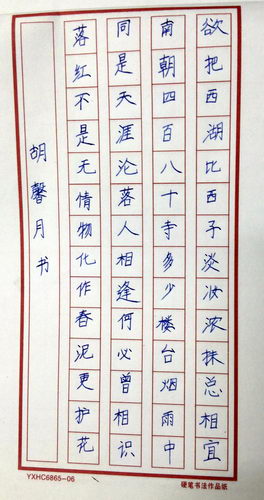 欲把西湖比西子淡妆浓抹总相宜
南朝四百八十寺多少楼台烟雨中
同是天涯沦落人相逢何必曾相识
落红不是无情物化作春泥更护花
胡馨月书
YXHC6865-06
硬笔书法作品纸